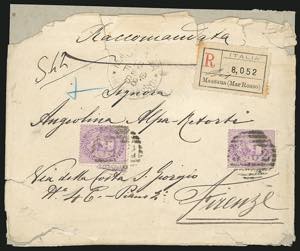 Raccomandata
R
ITALIA
8,052
Massaua (Mar Rosso)
Signora
Angiolina Alpa Retorti
Via della Costa S. Giorgio
Nº 46 - Piano 2º
Firenze